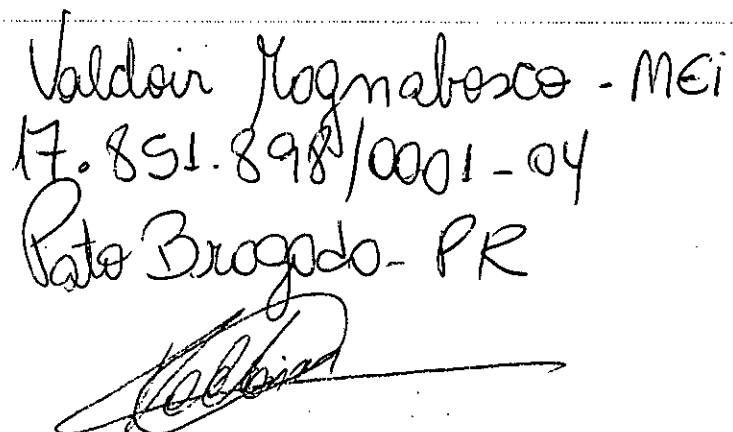 Valdoir Tognabosco - MEi
17.851.898/0001-04
Pato Bragado - PR
Valdoir